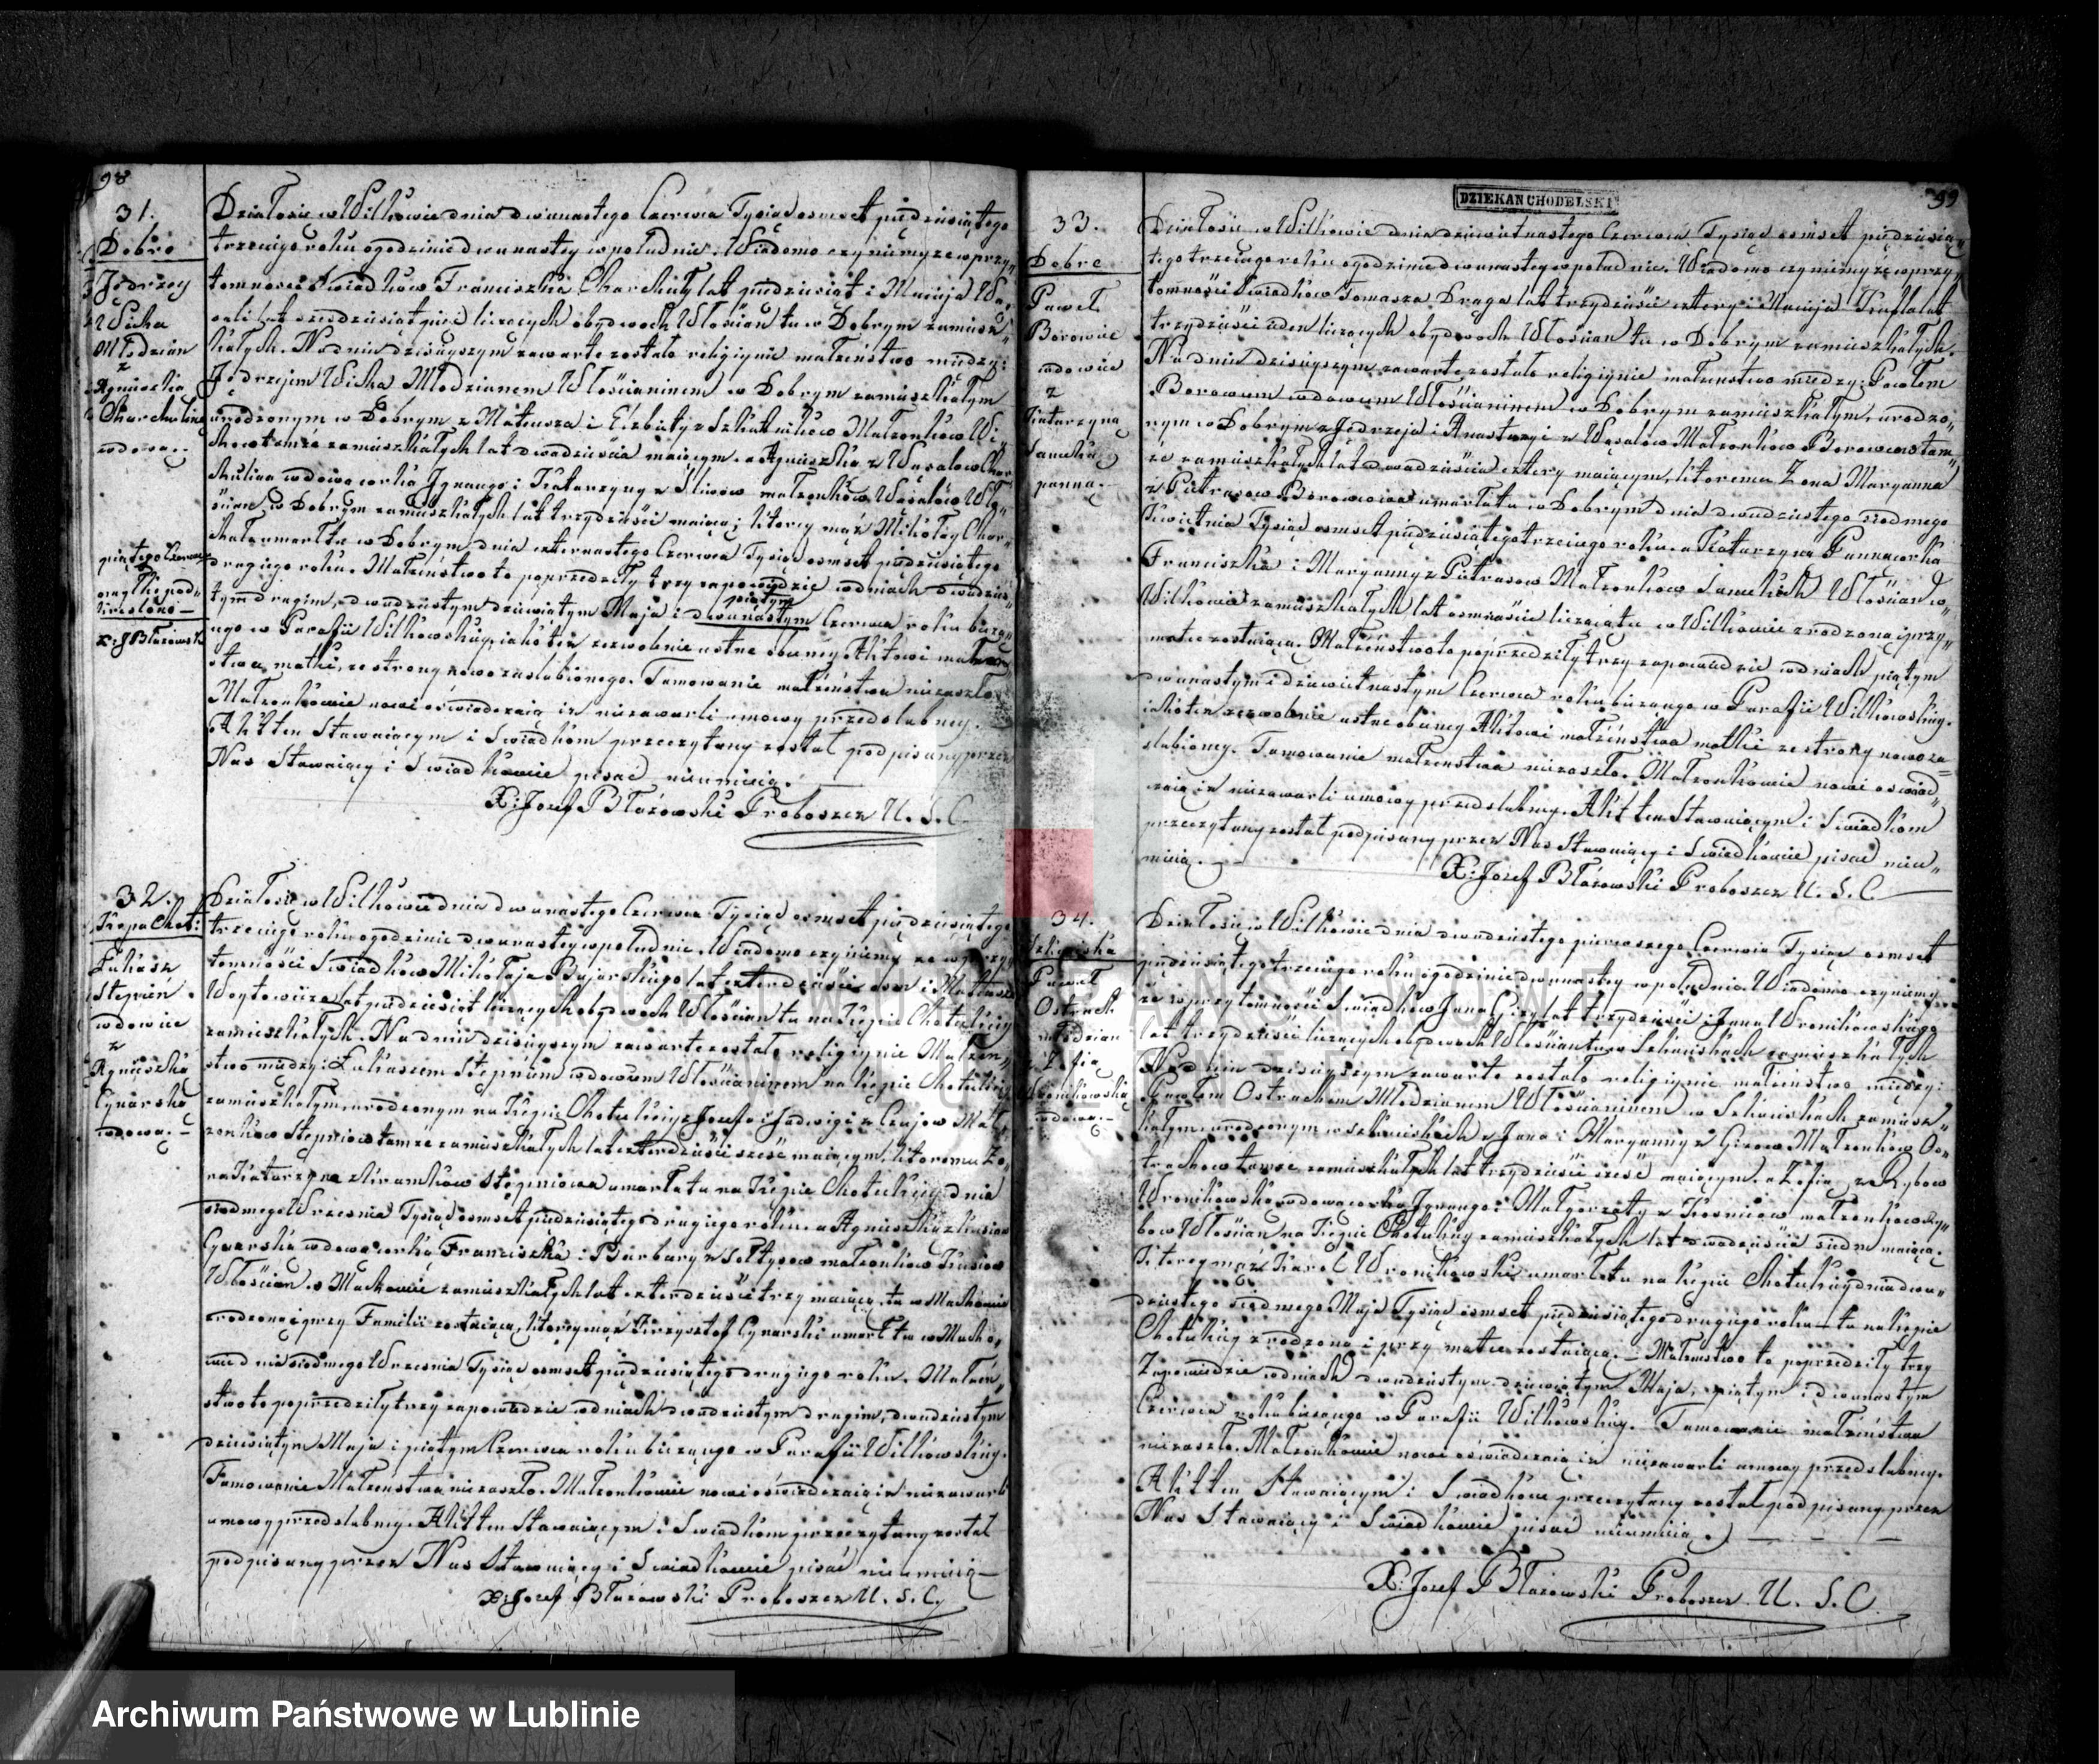 98
31.
Dobre
Jędrzey
Wicha
Młodzian
z
Agnieszką
Charchulina
wdową.
piątego Czerwca
omyłkę pod-
kreślono —
X. J Błażowski
Działo się w Wilkowie dnia dwunastego Czerwca Tysiąc osmset piędziesiątego
trzeciego roku o godzinie dwunastey w południe. Wiadomo czyniemy ze w przy-
tomności Swiadków Franciszka Charchuły lat piędziesiąt i Macieja
lat szesdziesiąt pięć liczących obydwoch Włościan tu w Dobrym zamiesz-
kałych. Na dniu dzisieyszym zawarte zostało religiynie małżeństwo między:
Jędrzejem Wicha Młodzianem Włościaninem w Dobrym zamieszkałym
urodzonym w Dobrym z Mateusza i Elżbiety z Szkutników Małżonków Wi-
chów tamze zamieszkałych lat dwadzieścia maiącym. a Agnieszką z Wąsalów Char-
chulina wdową corką Ignacego i Katarzyny z Sliwów małżonków Wąsalów Wło-
ścian w Dobrym zamieszkałych lat trzydzieści maiącą; ktorey mąż Mikołay Char-
chuła umarł tu w Dobrym dnia czternastego Czerwca Tysiąc osmset piędziesiątego
drugiego roku. Małżeństwo to poprzedziły trzy zapowiedzie w dniach dwudzies-
tym drugim, dwudziestym dziewiątym Maja i dwunastym piątym Czerwca roku bieżą-
cego w Parafii Wilkowskiey, iako też zezwolenie ustne obecney Aktowi małżeń-
stwa, matki, ze strony nowo zaślubionego. Tamowanie małżeństwa niezaszło.
Małżonkowie nowi oświadczaią iż niezawarli umowy przedslubney.
Akt ten Stawaiącym i Swiadkom przeczytany został podpisany przez
Nas Stawaiący i Swiadkowie pisać nieumieią.
X: Jozef Błażowski Proboszcz U. S. C
32.
Kępa Chot:
Łukasz
Stępień
wdowiec
z
Agnieszką
Cynarską
wdową. —
Działo się w Wilkowie dnia dwunastego Czerwca Tysiąc osmset piędziesiątego
trzeciego roku o godzinie dwunastey w południe. Wiadomo czyniemy ze w przy-
tomności Swiadków Mikołaja Pujarskiego lat czterdzieści osm i Mateusza
Woytowicza lat piędziesiąt liczących obydwoch Włościan tu na Kępie Choteckiey
zamieszkałych. Na dniu dzisieyszym zawarte zostało religiynie Małżeń-
stwo między: Łukaszem Stępniem wdowcem Włościaninem na Kępie Choteckiey
zamieszkałym, urodzonym na Kępie Choteckiey z Jozefa i Jadwigi z Czajow Mał-
żonków Stępniow tamze zamieszkałych lat czterdzieści sześć maiącym, ktoremu Żo-
na Katarzyna z Stępniowa umarła tu na Kępie Choteckiey dnia
siodmego Wrzesnia Tysiąc osmset piędziesiątego drugiego roku. a Agnieszką z
Cynarską wdową corką Franciszka i Barbary z Sołtysow małżonków
Włościan w Machowie zamieszkałych lat czterdzieści trzy maiącą, tu w Machowie
zrodzoną i przy Familii zostaiącą, ktorey mąż Krzysztof Cynarski umarł tu w Macho-
wie dnia siodmego Wrzesnia Tysiąc osmset piędziesiątego drugiego roku. Małżeń-
stwo to poprzedziły trzy zapowiedzie w dniach dwudziestym drugim, dwudziestym
dziewiątym Maja i piątym Czerwca roku bieżącego w Parafii Wilkowskiey.
Tamowanie Małżeństwa niezaszło. Małżonkowie nowi oświadczaią iż niezawarli
umowy przedslubney. Akt ten Stawaiącym i Swiadkom przeczytany został
podpisany przez Nas Stawaiący i Swiadkowie pisać nieumieią —
X. Jozef Błażowski Proboszcz U. S. C.
DZIEKAN CHODELSKI
99
33.
Dobre
Paweł
Borowiec
wdowiec
z
Katarzyną
panną.
Działo się w Wilkowie dnia dziewietnastego Czerwca Tysiąc osmset piędziesią-
tego trzeciego roku o godzinie dwunastey w południe. Wiadomo czyniemy ze w przy-
tomności Swiadków Tomasza Draga lat trzydzieści cztery i Macieja lat
trzydzieści ieden liczących obydwoch Włościan tu w Dobrym zamieszkałych.
Na dniu dzisieyszym zawarte zostało religiynie małżeństwo między: Pawłem
Borowcem wdowcem Włościaninem w Dobrym zamieszkałym, urodzo-
nym w Dobrym z Jędrzeja i Anastazyi z Wąsalow Małżonków Borowcow tam-
że zamieszkałych lat dwadzieścia cztery maiącym, ktoremu Żona Maryanna
z Pietrasow Borowcowa umarła tu w Dobrym dnia dwudziestego siodmego
Kwietnia Tysiąc osmset piędziesiątego trzeciego roku. a Katarzyną Panną corką
Franciszka i Maryanny z Pietrasow Małżonków Włościan w
Wilkowie zamieszkałych lat osmnaście liczącą tu w Wilkowie zrodzoną i przy
matce zostaiącą. Małżeństwo to poprzedziły trzy zapowiedzie w dniach piątym
dwunastym i dziewietnastym Czerwca roku bieżącego w Parafii Wilkowskiey.
iako też zezwolenie ustne obecney Aktowi małżeństwa matki ze strony nowo za-
slubioney. Tamowanie małżeństwa niezaszło. Małżonkowie nowi oswiad-
czaią iż niezawarli umowy przedslubney. Akt ten Stawaiącym i Swiadkom
przeczytany został podpisany przez Nas Stawaiący i Swiadkowie pisać nieu-
mieią.
X: Jozef Błażowski Proboszcz U. S. C
34.
Paweł
Ostrach
młodzian
z Zofią
Wronikowską
wdową. —
Działo się w Wilkowie dnia dwudziestego pierwszego Czerwca Tysiąc osmset
piędziesiątego trzeciego roku o godzinie dwunastey w południe. Wiadomo czyniemy
że w przytomności Swiadków Jana Gizy lat trzydzieści i Jana Wronikowskiego
lat trzydzieści liczących obydwoch Włościan tu w zamieszkałych
Na dniu dzisieyszym zawarte zostało religiynie małżeństwo między:
Pawłem Ostrachem Młodzianem Włościaninem w zamiesz-
kałym, urodzonym w z Jana i Maryanny z Gizow Małżonków Os-
trachow tamże zamieszkałych lat trzydzieści sześć maiącym. a Zofią z Rybow
Wronikowską wdową corką Ignacego i Małgorzaty z Kosniow małżonków Ry-
bow Włościan na Kępie Choteckiey zamieszkałych lat dwadzieścia siedm maiącą.
Ktorey mąż Karol Wronikowski umarł tu na Kępie Choteckiey dnia dwu-
dziestego siodmego Maja Tysiąc osmset piędziesiątego drugiego roku — tu na Kępie
Choteckiey zrodzoną i przy matce zostaiącą. — Małżeństwo to poprzedziły trzy
Zapowiedzie w dniach dwudziestym dziewiątym Maja, piątym i dwunastym
Czerwca roku bieżącego w Parafii Wilkowskiey. Tamowanie małżeństwa
niezaszło. Małżonkowie nowi oświadczaią iż niezawarli umowy przedslubney.
Akt ten Stawaiącym i Swiadkom przeczytany został podpisany przez
Nas Stawaiący i Swiadkowie pisać nieumieią.
X: Jozef Błażowski Proboszcz U. S. C.
ARCHIWUM PAŃSTWOWE
W LUBLINIE
Archiwum Państwowe w Lublinie